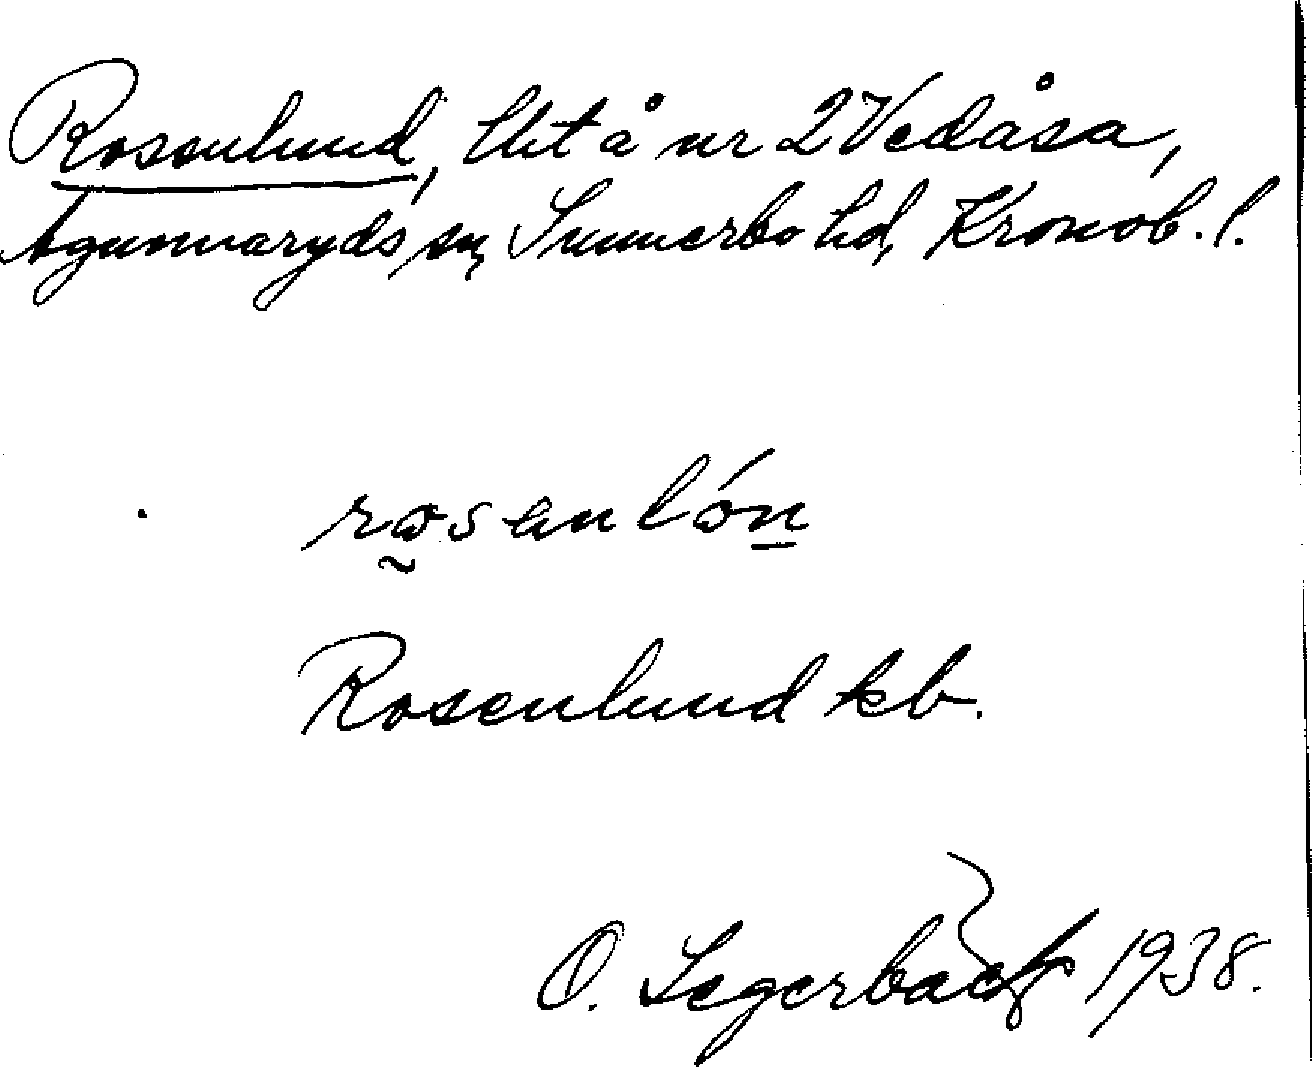 Rosenlund, lht å nr 2 Vedåsa,
Agunnaryds sn, Sunnerbo hd, Kronob. l.
rosenlón
Rosenlund kb.
O. Segerbäck 1938.